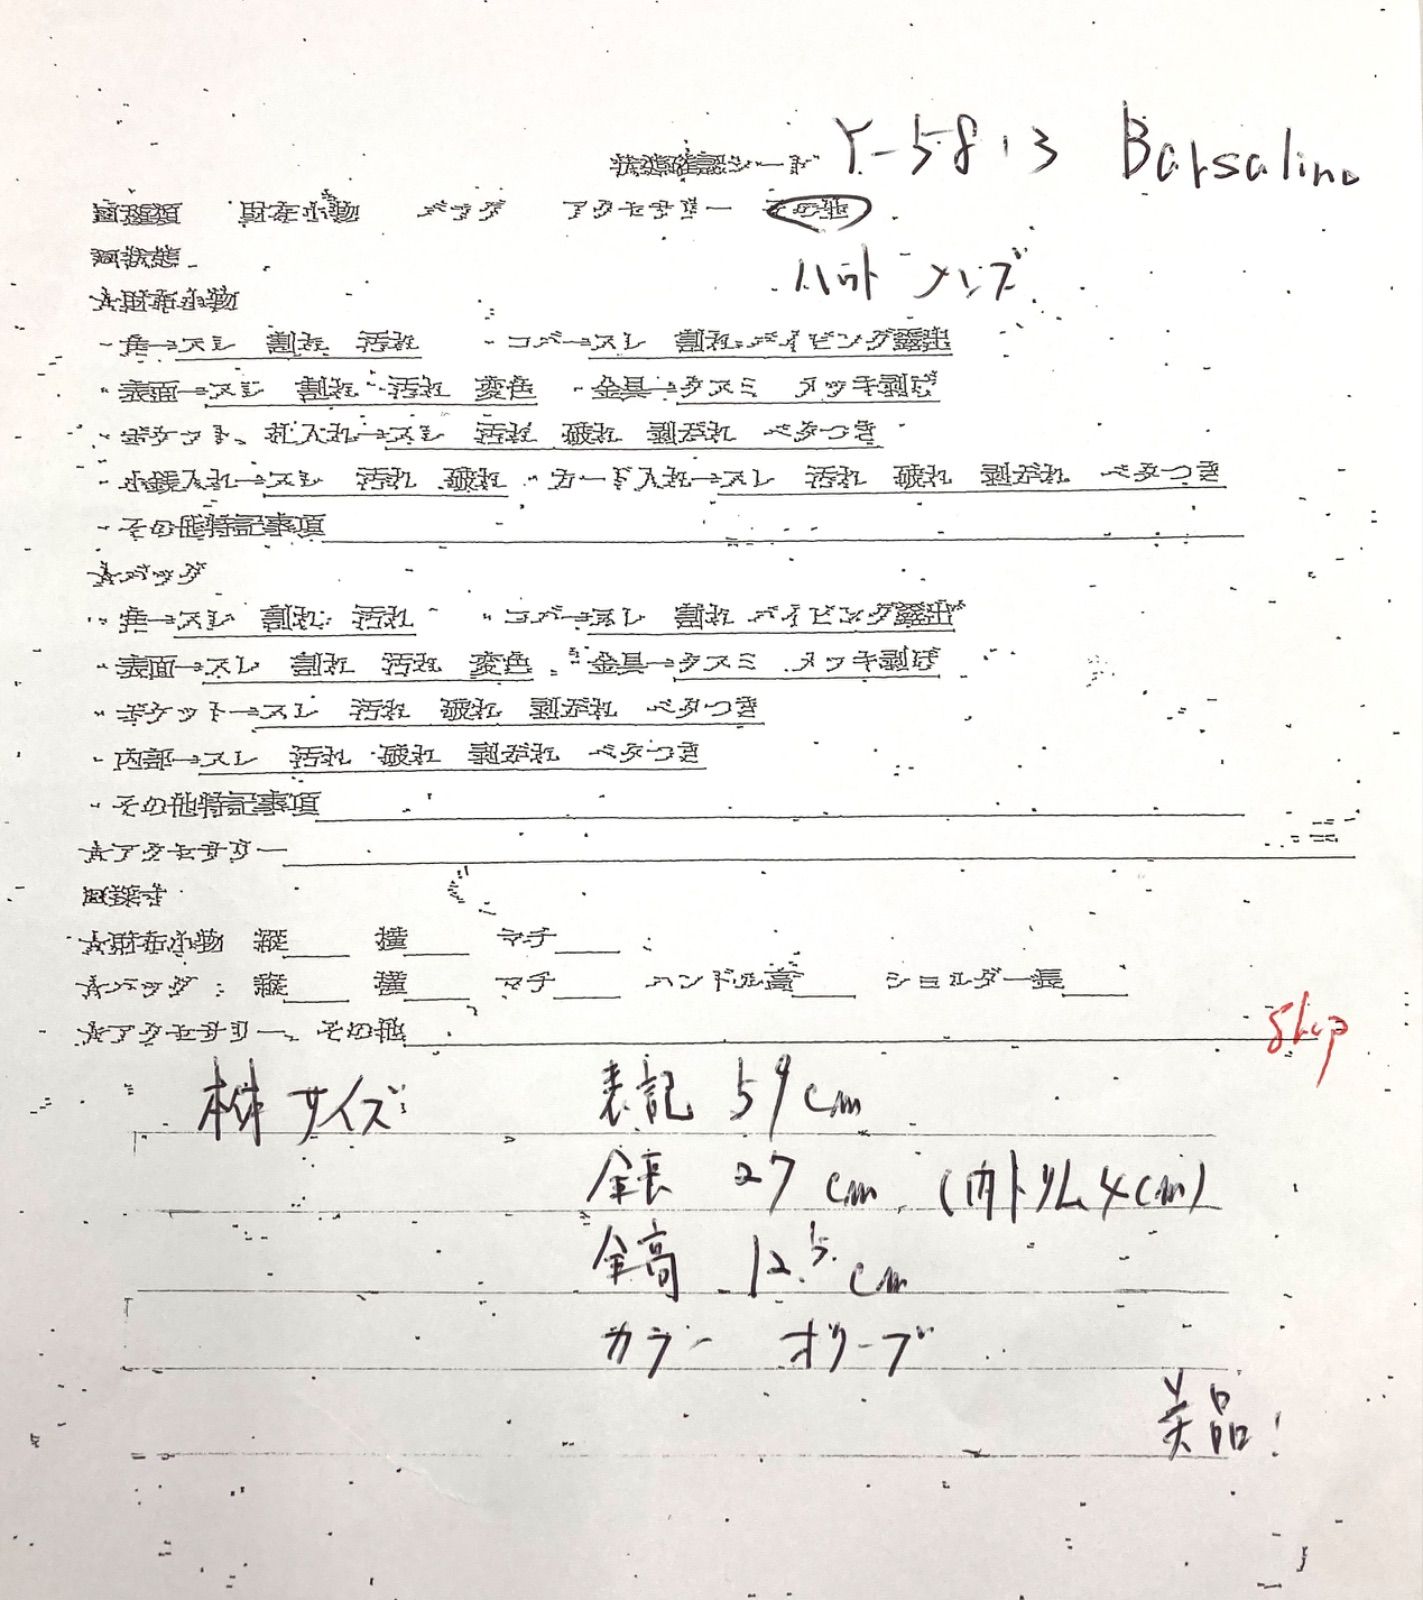 状態確認シート Y-5813 Borsalino
財布小物 バッグ アクセサリー その他
状態
ハット メンズ
☆財布小物
・角→スレ 割れ 汚れ ・コバ→スレ 割れ パイピング露出
・表面→スレ 割れ 汚れ 変色 ・金具→クスミ メッキ剥げ
・ポケット、札入れ→スレ 汚れ 破れ 剥がれ ベタつき
・小銭入れ→スレ 汚れ 破れ ・カード入れ→スレ 汚れ 破れ 剥がれ ベタつき
・その他特記事項
☆バッグ
・角→スレ 割れ 汚れ ・コバ→スレ 割れ パイピング露出
・表面→スレ 割れ 汚れ 変色 ・金具→クスミ メッキ剥げ
・ポケット→スレ 汚れ 破れ 剥がれ ベタつき
・内部→スレ 汚れ 破れ 剥がれ ベタつき
・その他特記事項
☆アクセサリー
採寸
☆財布小物 縦 横 マチ
☆バッグ 縦 横 マチ ハンドル高 ショルダー長
☆アクセサリー、その他
サイズ 表記 59cm
全長 27cm (内トリム4cm)
全高 12.5cm
カラー オリーブ
美品!